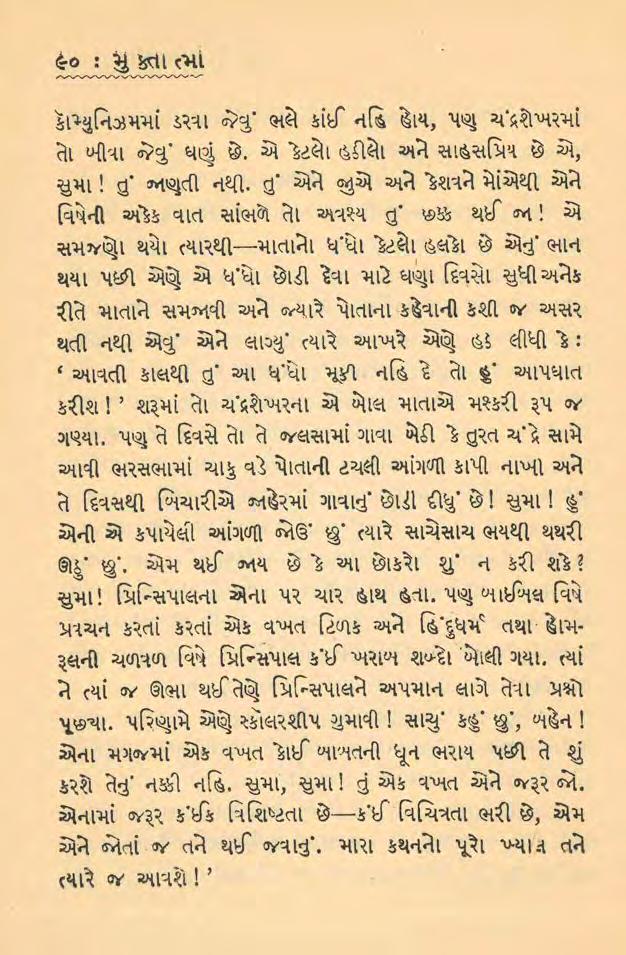 ૯૦ : મુ ક્તા ત્મા
કૉમ્યુનિઝમમાં ડરવા જેવું ભલે કાંઈ નહિ હોય, પણ ચંદ્રશેખરમાં
તો બીવા જેવું ઘણું છે. એ કેટલો હઠીલો અને સાહસપ્રિય છે એ,
સુમા! તું જાણતી નથી. તું એને જુએ અને કેશવને મોંએથી એને
વિષેની અકેક વાત સાંભળે તો અવશ્ય તું છક્ક થઈ જા! એ
સમજણો થયો ત્યારથી—માતાનો ધંધો કેટલો હલકો છે એનું ભાન
થયા પછી એણે એ ધંધો છોડી દેવા માટે ઘણા દિવસો સુધી અનેક
રીતે માતાને સમજાવી અને જ્યારે પોતાના કહેવાની કશી જ અસર
થતી નથી એવું એને લાગ્યું ત્યારે આખરે એણે હઠ લીધી કે :
‘ આવતી કાલથી તું આ ધંધો મૂકી નહિ દે તો હું આપઘાત
કરીશ! ’ શરૂમાં તો ચંદ્રશેખરના એ બોલ માતાએ મશ્કરી રૂપ જ
ગણ્યા. પણ તે દિવસે તો તે જલસામાં ગાવા બેઠી કે તુરત ચંદ્રે સામે
આવી ભરસભામાં ચાકુ વડે પોતાની ટચલી આંગળી કાપી નાખી અને
તે દિવસથી બિચારીએ જાહેરમાં ગાવાનું છોડી દીધું છે! સુમા! હું
એની એ કપાયેલી આંગળી જોઉં છું ત્યારે સાચેસાચ ભયથી થથરી
ઊઠું છું. એમ થઈ જાય છે કે આ છોકરો શું ન કરી શકે?
સુમા! પ્રિન્સિપાલના એના પર ચાર હાથ હતા. પણ બાઈબલ વિષે
પ્રવચન કરતાં કરતાં એક વખત ટિળક અને હિંદુધર્મ તથા હોમ-
રૂલની ચળવળ વિષે પ્રિન્સિપાલ કંઈ ખરાબ શબ્દો બોલી ગયા. ત્યાં
ને ત્યાં જ ઊભા થઈ તેણે પ્રિન્સિપાલને અપમાન લાગે તેવા પ્રશ્નો
પૂછ્યા. પરિણામે એણે સ્કૉલરશીપ ગુમાવી! સાચું કહું છું, બહેન!
એના મગજમાં એક વખત કોઈ બાબતની ધૂન ભરાય પછી તે શું
કરશે તેનું નક્કી નહિ. સુમા, સુમા! તું એક વખત એને જરૂર જો.
એનામાં જરૂર કંઈક વિશિષ્ટતા છે—કંઈ વિચિત્રતા ભરી છે, એમ
એને જોતાં જ તને થઈ જવાનું. મારા કથનનો પૂરો ખ્યાલ તને
ત્યારે જ આવશે! ’